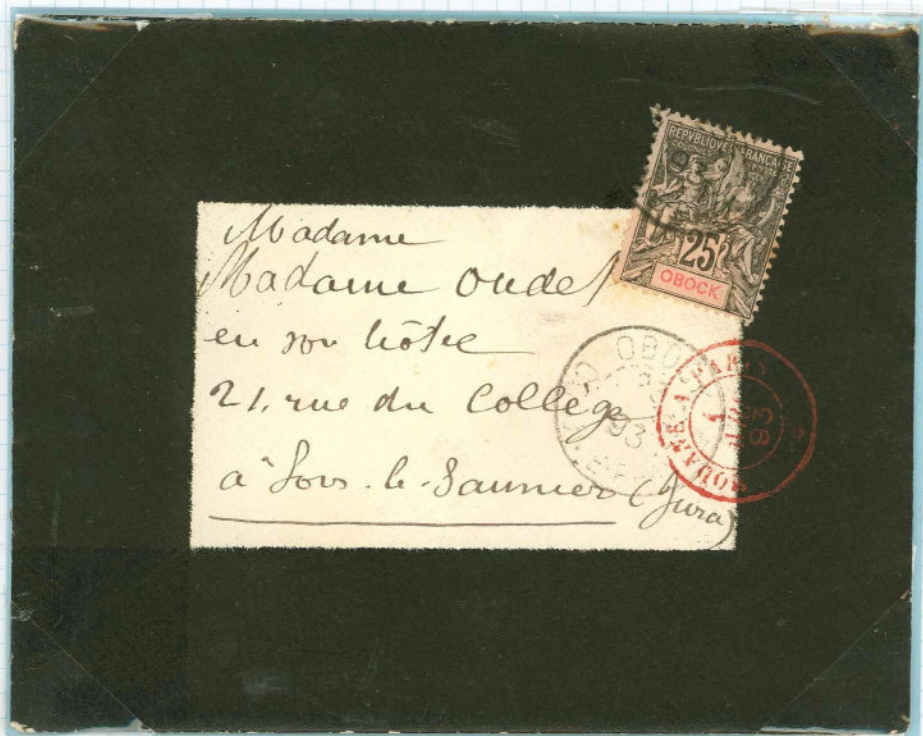 REPVBLIQUE FRANÇAISE
COLONIES
25
OBOCK
Madame
Madame Oudet
en son hôtel
21, rue du Collège
à Lons-le-Saunier (Jura)
OBOCK
93
MODANE A PARIS
1
93